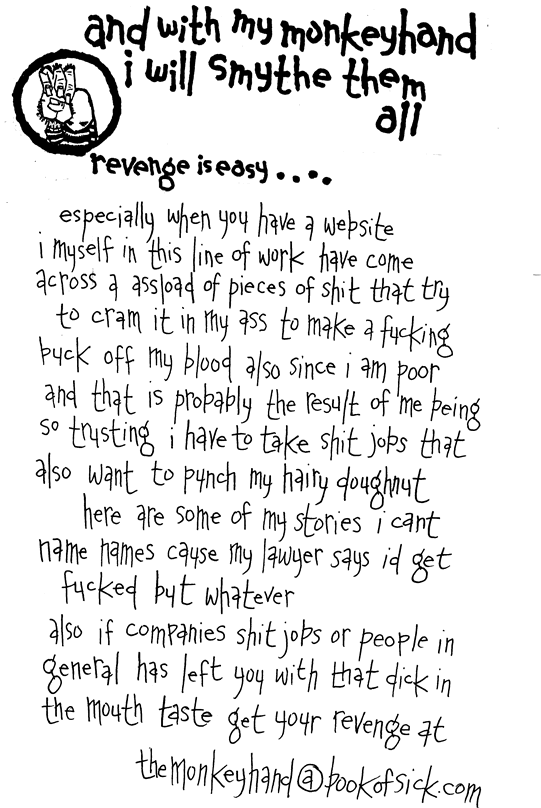 and with my monkeyhand
i will smythe them
all
revenge is easy....
especially when you have a website
i myself in this line of work have come
across a assload of pieces of shit that try
to cram it in my ass to make a fucking
buck off my blood also since i am poor
and that is probably the result of me being
so trusting i have to take shit jobs that
also want to punch my hairy doughnut
here are some of my stories i cant
name names cause my lawyer says id get
fucked but whatever
also if companies shit jobs or people in
general has left you with that dick in
the mouth taste get your revenge at
themonkeyhand@bookofsick.com